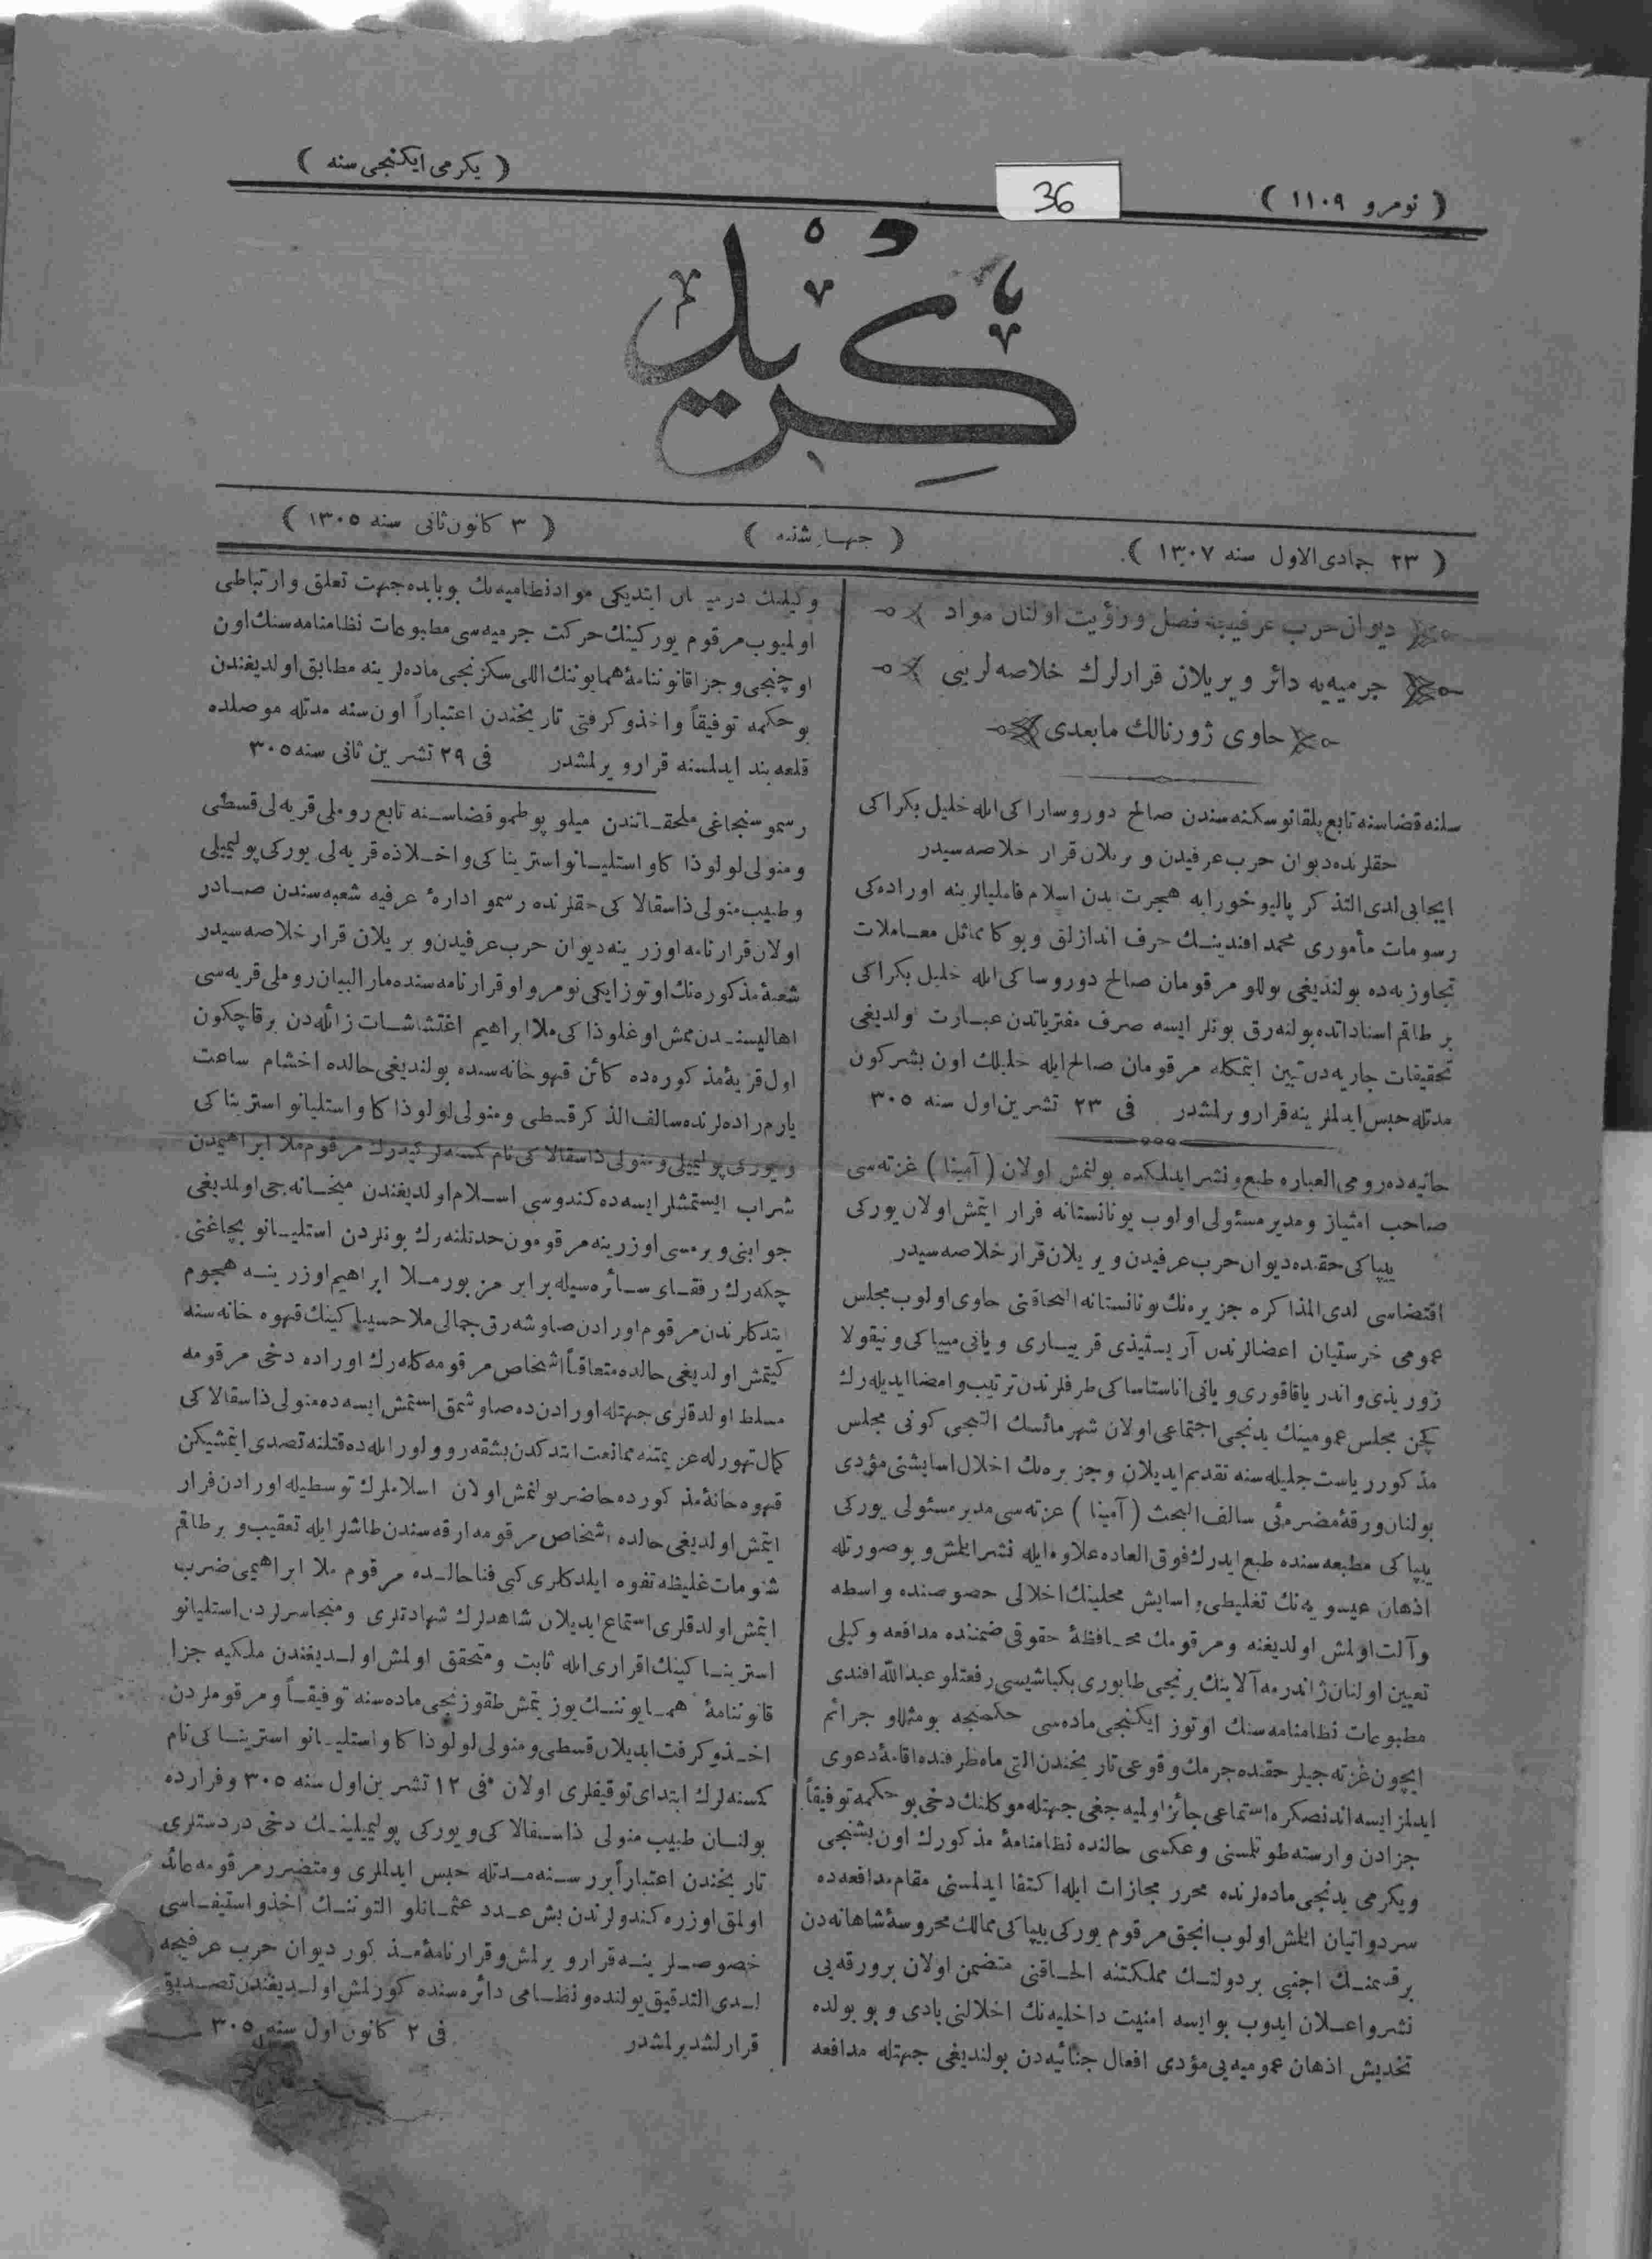 ( نومرو ١١٠٩ )
36
( يكرمی ایکنجی سنه )
كريد
( ٢٣ جمادى الاول سنه ١٣٠٧ )
( چهارشنبه )
( ٣ كانون ثانی سنه ١٣٠٥ )
ديوان حرب عرفيجه فصل و رؤيت اولنان مواد
جرميه يه دائر ويريلان قرارلرك خلاصه لرينى
حاوی ژورنالك مابعدی
سلنه قضاسنه تابع پلقانو سكنه سندن صالح دوروساراكی ايله خليل بكراكی
حقلرنده ديوان حرب عرفيدن ويريلان قرار خلاصه سيدر
ايجابی لدی التذكر پاليوخورايه هجرت ايدن اسلام فاميليالرينه اوراده كی
رسومات مأموری محمد افندينك حرف اندازلق وبوكا مماثل معاملات
تجاوزيه ده بولنديغی يوللو مرقومان صالح دوروساكی ايله خليل بكراكی
بر طاقم اسناداتده بولنه رق بونلر ايسه صرف مفترياتدن عبارت اولديغی
تحقيقات جاريه دن تبين ايتمكله مرقومان صالح ايله خليلك اون بشر كون
مدتله حبس ايدلمرينه قرار ويرلمشدر فی ٢٣ تشرين اول سنه ٣٠٥
حانيه ده رومی العباره طبع ونشر ايدلمكده بولنمش اولان ( آمينا ) غزته سی
صاحب امتياز ومدير مسئولی اولوب يونانستانه فرار ايتمش اولان يوركی
پيپاكی حقنده ديوان حرب عرفيدن ويريلان قرار خلاصه سيدر
اقتضاسی لدی المذاكره جزيره نك يونانستانه التحاقنی حاوی اولوب مجلس
عمومی خرستيان اعضالرندن آريستيذی قريياری ويانی ميپاكی ونيقولا
زوريذی واندريا قاقوری ويانی اناستاساكی طرفلرندن ترتيب وامضا ايديله رك
كچن مجلس عمومينك يدنجی اجتماعی اولان شهر مائسك التنجی كونی مجلس
مذكور رياست جليله سنه تقديم ايديلان وجزيره نك اخلال اسايشنی مؤدی
بولنان ورقه مضره ئی سالف البحث ( آمينا ) غزته سی مدير مسئولی يوركی
پيپاكی مطبعه سنده طبع ايدرك فوق العاده علاوه ايله نشر ايلمش وبو صورتله
اذهان عيسويه نك تغليطی واسايش محلينك اخلالی خصوصنده واسطه
وآلت اولمش اولديغنه ومرقومك محافظه حقوقی ضمننده مدافعه وكيلی
تعيين اولنان ژاندرمه آلاينك برنجی طابوری بكباشيسی رفعتلو عبدالله افندی
مطبوعات نظامنامه سنك اوتوز ايكنجی ماده سی حكمنجه بو مثللو جرائم
ايچون غزته جيلر حقنده جرمك وقوعی تاريخندن التی ماه ظرفنده اقامه دعوی
ايدلمز ايسه اندنصكره استماعی جائز اوليه جغی جهتله موكلنك دخی بو حكمه توفيقاً
جزادن وارسته طوتلمسنی وعكسی حالنده نظامنامه مذكورك اون بشنجی
ويكرمی يدنجی ماده لرنده محرر مجازات ايله اكتفا ايدلمسنی مقام مدافعه ده
سرد واتيان ايلمش اولوب انجق مرقوم يوركی پيپاكی ممالك محروسه شاهانه دن
بر قسمنك اجنبی بر دولتك مملكتنه الحاقنی متضمن اولان بر ورقه يی
نشر واعلان ايدوب بو ايسه امنيت داخليه نك اخلالنی بادی وبو يولده
تخديش اذهان عموميه يی مؤدی افعال جنائيه دن بولنديغی جهتله مدافعه
وكيلنك درميان ايتديكی مواد نظاميه نك بوبابده جهت تعلق وارتباطی
اولميوب مرقوم يوركينك حركت جرميه سی مطبوعات نظامنامه سنك اون
اوچنجی وجزا قانوننامه همايوننك اللی سكزنجی ماده لرينه مطابق اولديغندن
بو حكمه توفيقاً واخذ وكرفتی تاريخندن اعتباراً اون سنه مدتله موصلده
قلعه بند ايدلمسنه قرار ويرلمشدر فی ٢٩ تشرين ثانی سنه ٣٠٥
رسمو سنجاغی ملحقاتندن ميلوپوطمو قضاسنه تابع روملی قريه لی قسطی
ومنولی لولوذاكا واستليانو استريناكی واخلاذه قريه لی يوركی پوليميلی
وطبيب منولی ذاسقالاكی حقلرنده رسمو اداره عرفيه شعبه سندن صادر
اولان قرارنامه اوزرينه ديوان حرب عرفيدن ويريلان قرار خلاصه سيدر
شعبه مذكوره نك اوتوز ايكی نومرولو قرارنامه سنده مار البيان روملی قريه سی
اهاليسندن ممش اوغلوذاكی ملا ابراهيم اغتشاشات زائله دن بر قاچ كون
اول قريه مذكوره ده كائن قهوه خانه سنده بولنديغی حالده اخشام ساعت
يارم راده لرنده سالف الذكر قسطی ومنولی لولوذاكا واستليانو استريناكی
ويوركی پوليميلی ومنولی ذاسقالاكی نام كمسه لر كيدرك مرقوم ملا ابراهيمدن
شراب ايستمشلر ايسه ده كندوسی اسلام اولديغندن ميخانه جی اولمديغی
جوابنی ويرمسی اوزرينه مرقومون حدتلنه رك بونلردن استليانو بچاغنی
چكه رك رفقای سائره سيله برابر مزبور ملا ابراهيم اوزرينه هجوم
ايتدكلرندن مرقوم اورادن صاوشه رق جمالی ملا حسيباكينك قهوه خانه سنه
كيتمش اولديغی حالده متعاقباً اشخاص مرقومه كله رك اوراده دخی مرقومه
مسلط اولدقلری جهتله اورادن ده صاوشمق استمش ايسه ده منولی ذاسقالاكی
كمال تهورله عزيمتنه ممانعت ايتدكدن بشقه روولور ايله ده قتلنه تصدی ايتمشيكن
قهوه خانه مذكورده حاضر بولنمش اولان اسلاملرك توسطيله اورادن فرار
ايتمش اولديغی حالده اشخاص مرقومه ارقه سندن طاشلر ايله تعقيب وبر طاقم
شتومات غليظه تفوه ايلدكلری كبی فنا حالده مرقوم ملا ابراهيمی ضرب
ايتمش اولدقلری استماع ايديلان شاهدلرك شهادتلری ومتجاسرلردن استليانو
استريناكينك اقراری ايله ثابت ومتحقق اولمش اولديغندن ملكيه جزا
قانوننامه همايوننك يوز يتمش طقوزنجی ماده سنه توفيقاً ومرقوملردن
اخذ وكرفت ايديلان قسطی ومنولی لولوذاكا واستليانو استريناكی نام
كمسنه لرك ابتدای توقيفلری اولان فی ١٢ تشرين اول سنه ٣٠٥ وفرارده
بولنان طبيب منولی ذاسقالاكی ويوركی پوليميلينك دخی دردستلری
تاريخندن اعتباراً برر سنه مدتله حبس ايدلملری ومتضرر مرقومه عائد
اولمق اوزره كندولرندن بش عدد عثمانلو التوننك اخذ واستيفاسی
خصوصلرينه قرار ويرلمش وقرارنامه مذكور ديوان حرب عرفيجه
لدی التدقيق يولنده ونظامی دائره سنده كورلمش اولديغندن تصديق
قرارلشديرلمشدر فی ٢ كانون اول سنه ٣٠٥